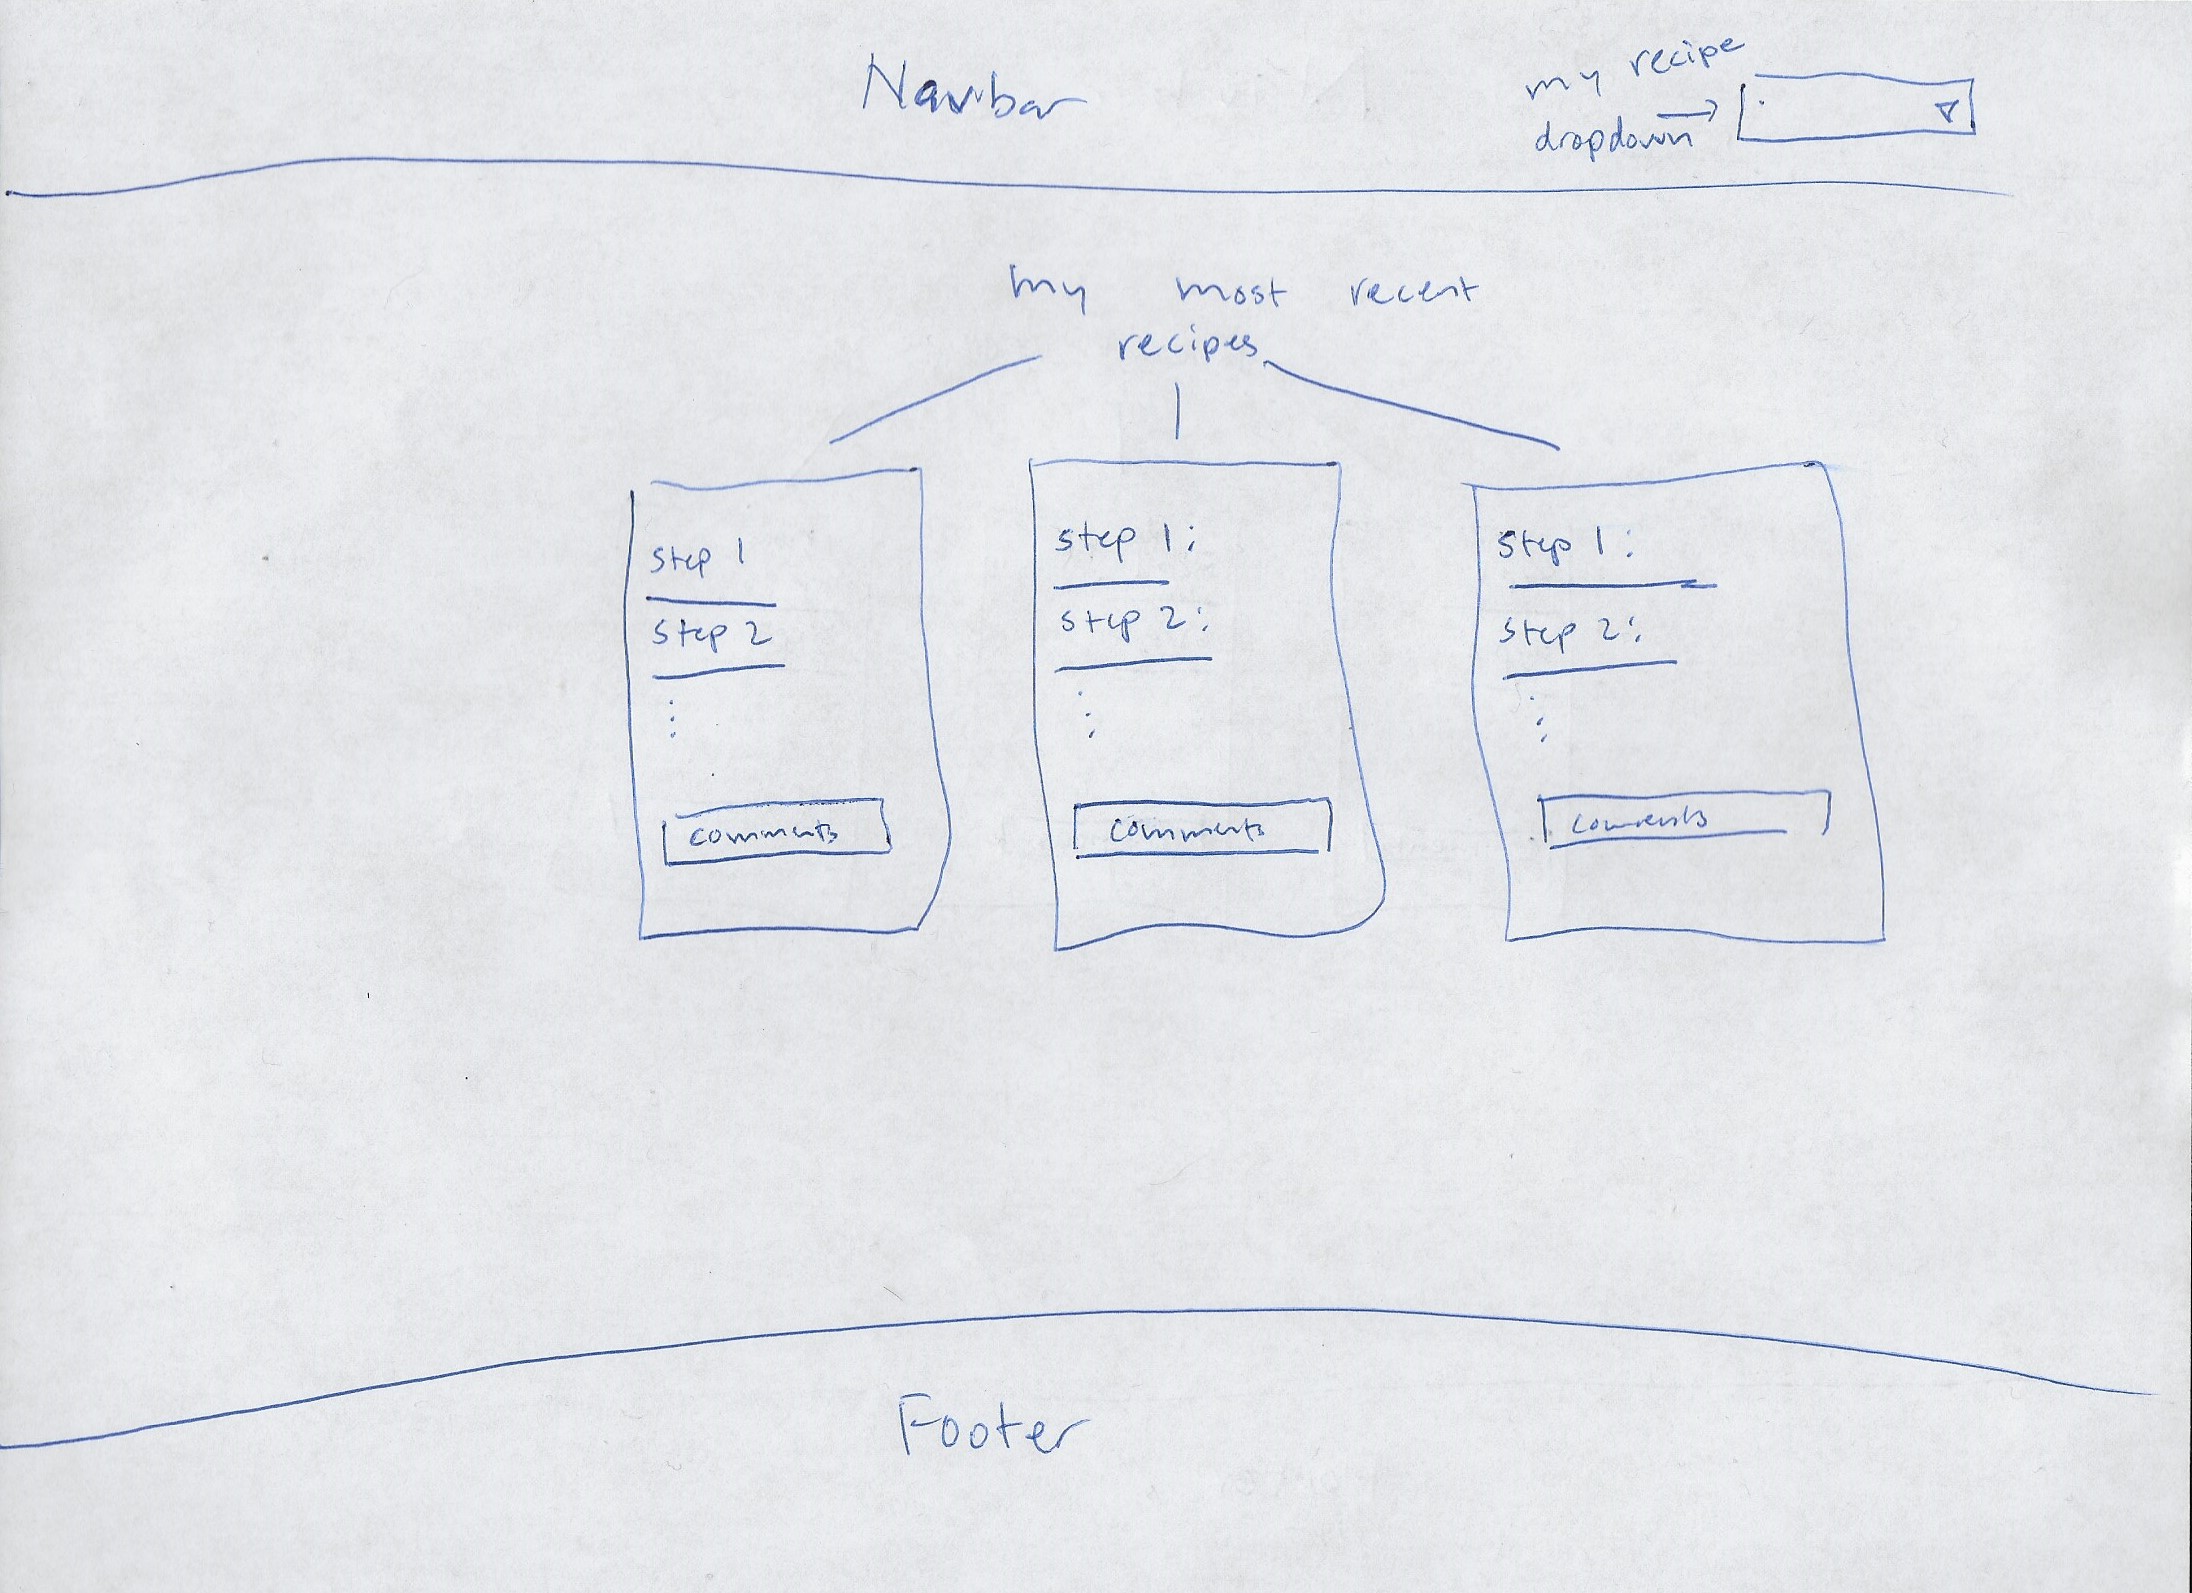 Navbar
my recipe
dropdown
my most recent
recipes
step 1
step 2
comments
step 1:
step 2:
comments
step 1:
step 2:
comments
Footer